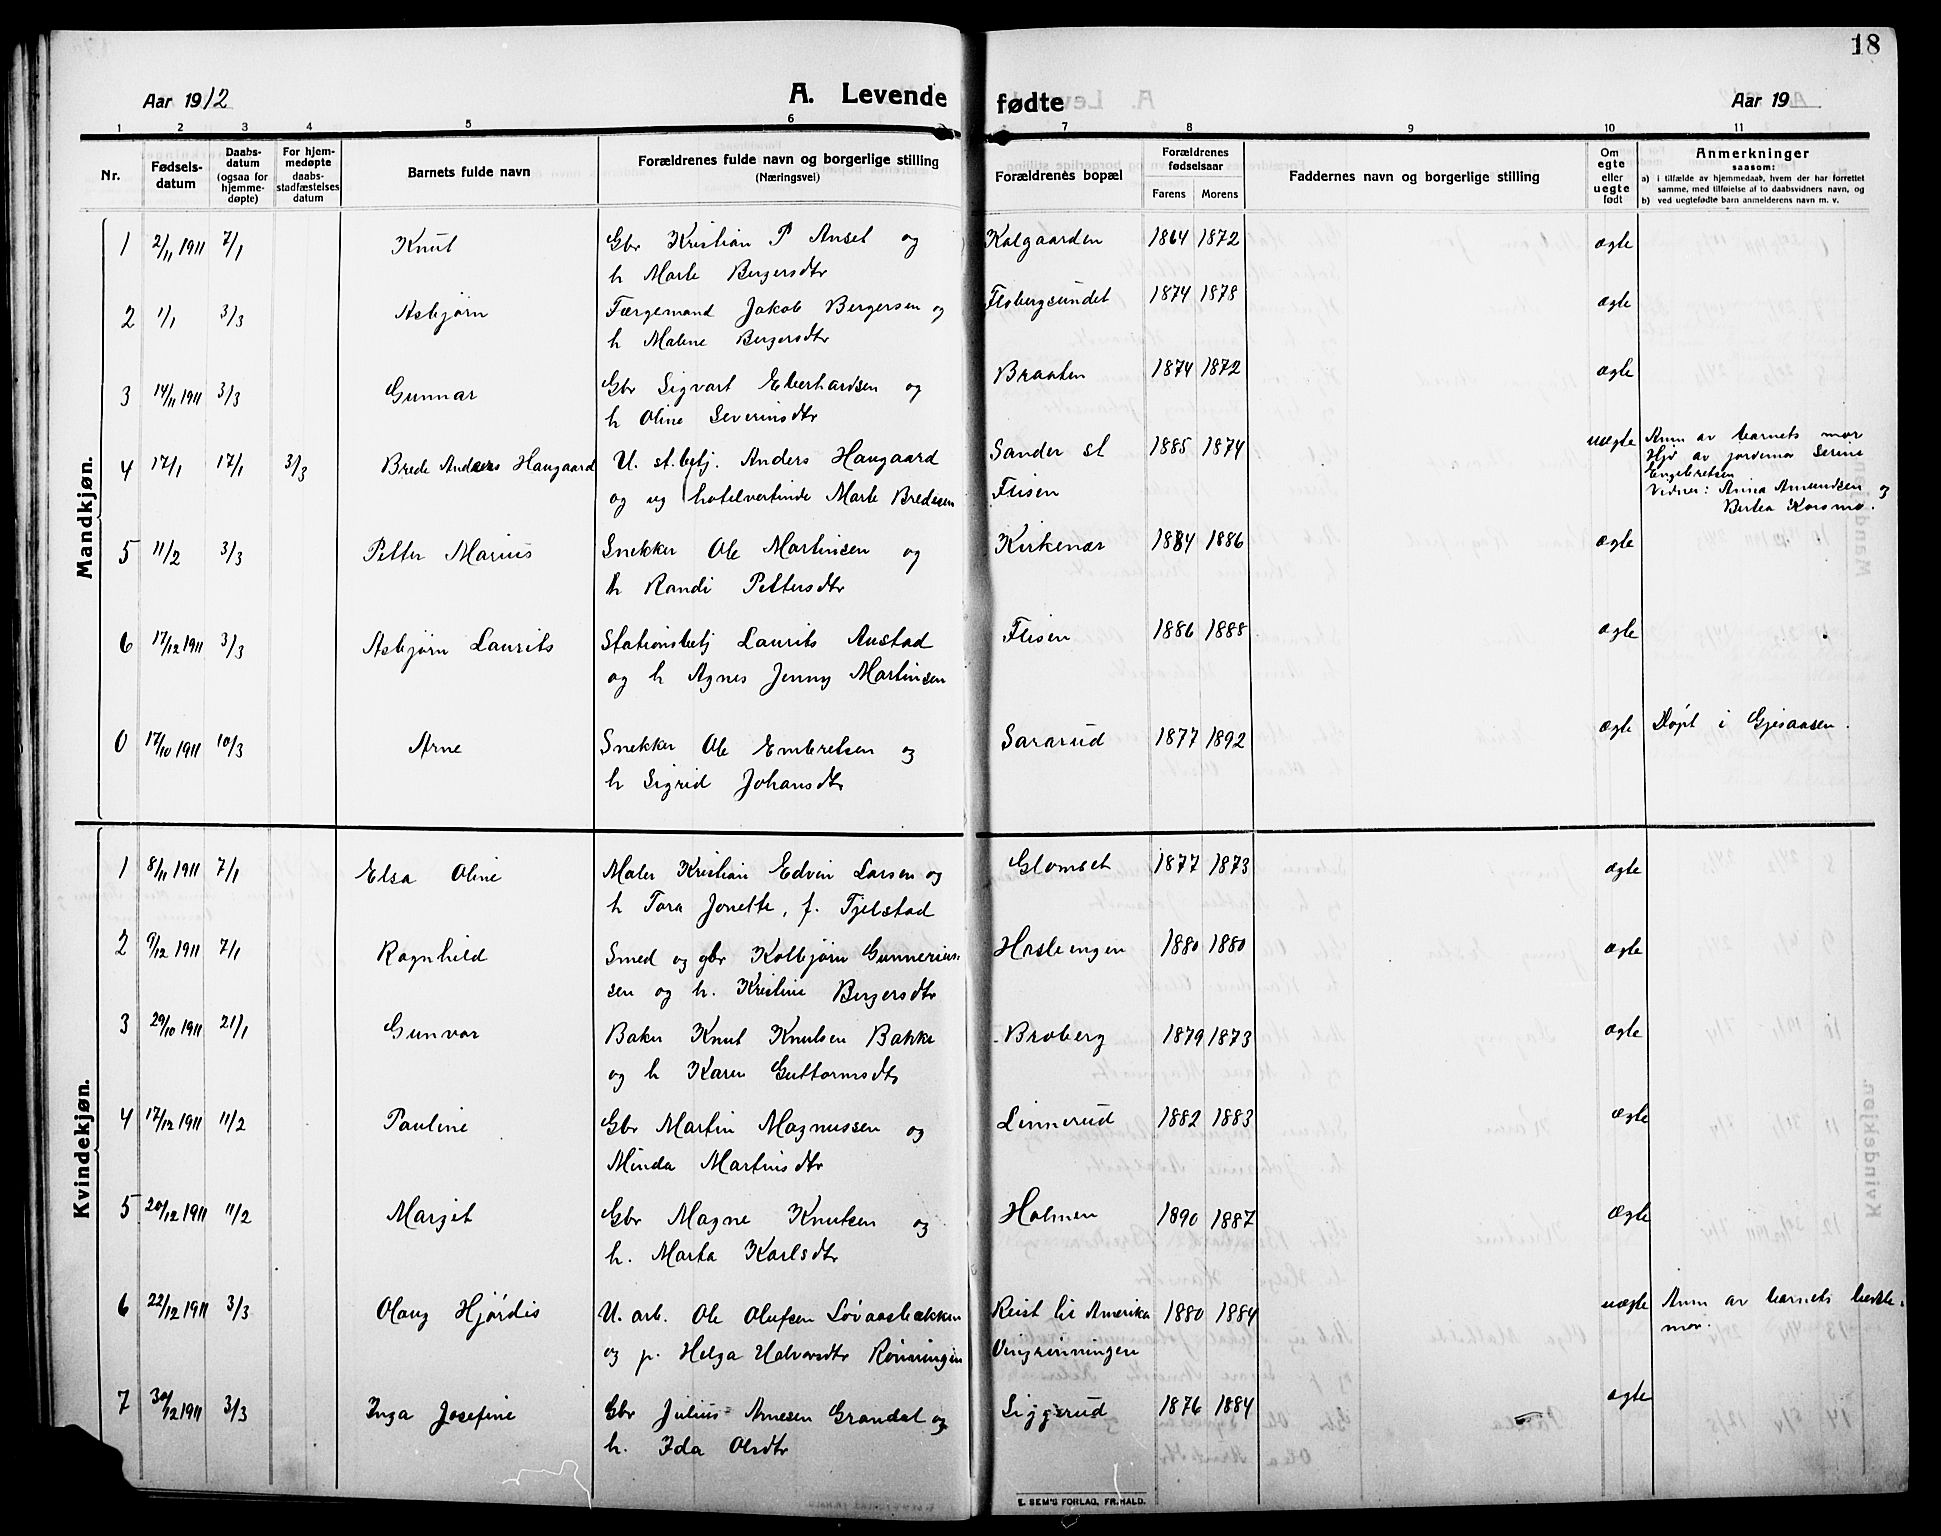 18
Aar 1912 A. Levende fødte Aar 19
1 2 3 4 5 6 7 8 9 10 11
Nr. Fødsels-datum Daabs-datum (ogsaa for hjemme-døpte) For hjem-medøpte daabs-stadfæstelses datum Barnets fulde navn Forældrenes fulde navn og borgerlige stilling (Næringsvei) Forældrenes bopæl Forældrenes fødselsaar Farens Morens Faddernes navn og borgerlige stilling Om egte eller uegte født Anmerkninger saasom: a) i tilfælde av hjemmedaab, hvem der har forrettet samme, med tilføielse af to daabsvidners navn, og b) ved uegtefødte barn anmelderens navn m. v.
Mandkjøn.
1 2/11 1911 7/1 Knut Gbr Kristian P Anset og Kalgaarden 1864 1872 ægte
h Marte Bergersdtr
2 1/1 3/3 Asbjørn Færgemand Jakob Bergersen og Flisbergsundet 1874 1878 ægte
h Malene Bergersdtr
3 14/11 1911 3/3 Gunnar Gbr Sigvart Eberhardsen og Braaten 1874 1872 ægte
h Oline Severinsdtr
4 17/1 17/1 3/3 Brede Anders Haugaard U. st.betj. Anders Haugaard Sander st 1885 1874 uægte Anm av barnets mor
og ug hotelvertinde Marte Bredesen Flisen Hjd av jordemor Serine
Engebretsen
Vidner: Anna Amundsen og
Bertea Korsmo.
5 11/2 3/3 Petter Marius Snekker Ole Martinsen og Kirkenær 1884 1886 ægte
h Randi Pettersdtr
6 17/12 1911 3/3 Asbjørn Laurits Stationsbetj Laurits Austad Flisen 1886 1888 ægte
og h Agnes Jenny Martinsen
0 17/10 1911 10/3 Arne Snekker Ole Embretsen og Sararud 1877 1892 ægte Døpt i Gjesaasen.
h Sigrid Johansdtr
Kvindekjøn.
1 8/11 1911 7/1 Elsa Oline Maler Kristian Edvin Larsen og Glomset 1877 1873 ægte
h Tora Jonette, f. Fjelstad
2 9/12 1911 7/1 Ragnhild Smed og gbr Kolbjørn Gunnerius- Hasleengen 1880 1880 ægte
sen og h. Kristine Bergersdtr
3 29/10 1911 21/1 Gunvor Baker Knut Knutsen Bakke Broberg 1879 1873 ægte
og h Karen Guttormsdtr
4 17/12 1911 11/2 Pauline Gbr Martin Magnussen og Linnerud 1882 1883 ægte
Minda Martinsdtr
5 20/12 1911 11/2 Margit Gbr Magne Knutsen og Holmen 1890 1887 ægte
h. Marta Karlsdtr
6 22/12 1911 3/3 Olaug Hjørdis U. arb. Ole Olufsen Løvaasbækken Reist til Amerika 1880 1884 uægte Anm av barnets bedste-
og p. Helga Halvorsdtr Rønningen mor.
7 30/12 1911 3/3 Inga Josefine Gbr Julius Arnesen Grandal og Siggerud 1876 1884 ægte
h. Ida Olsdtr
E. SEM'S FORLAG, FR.HALD.